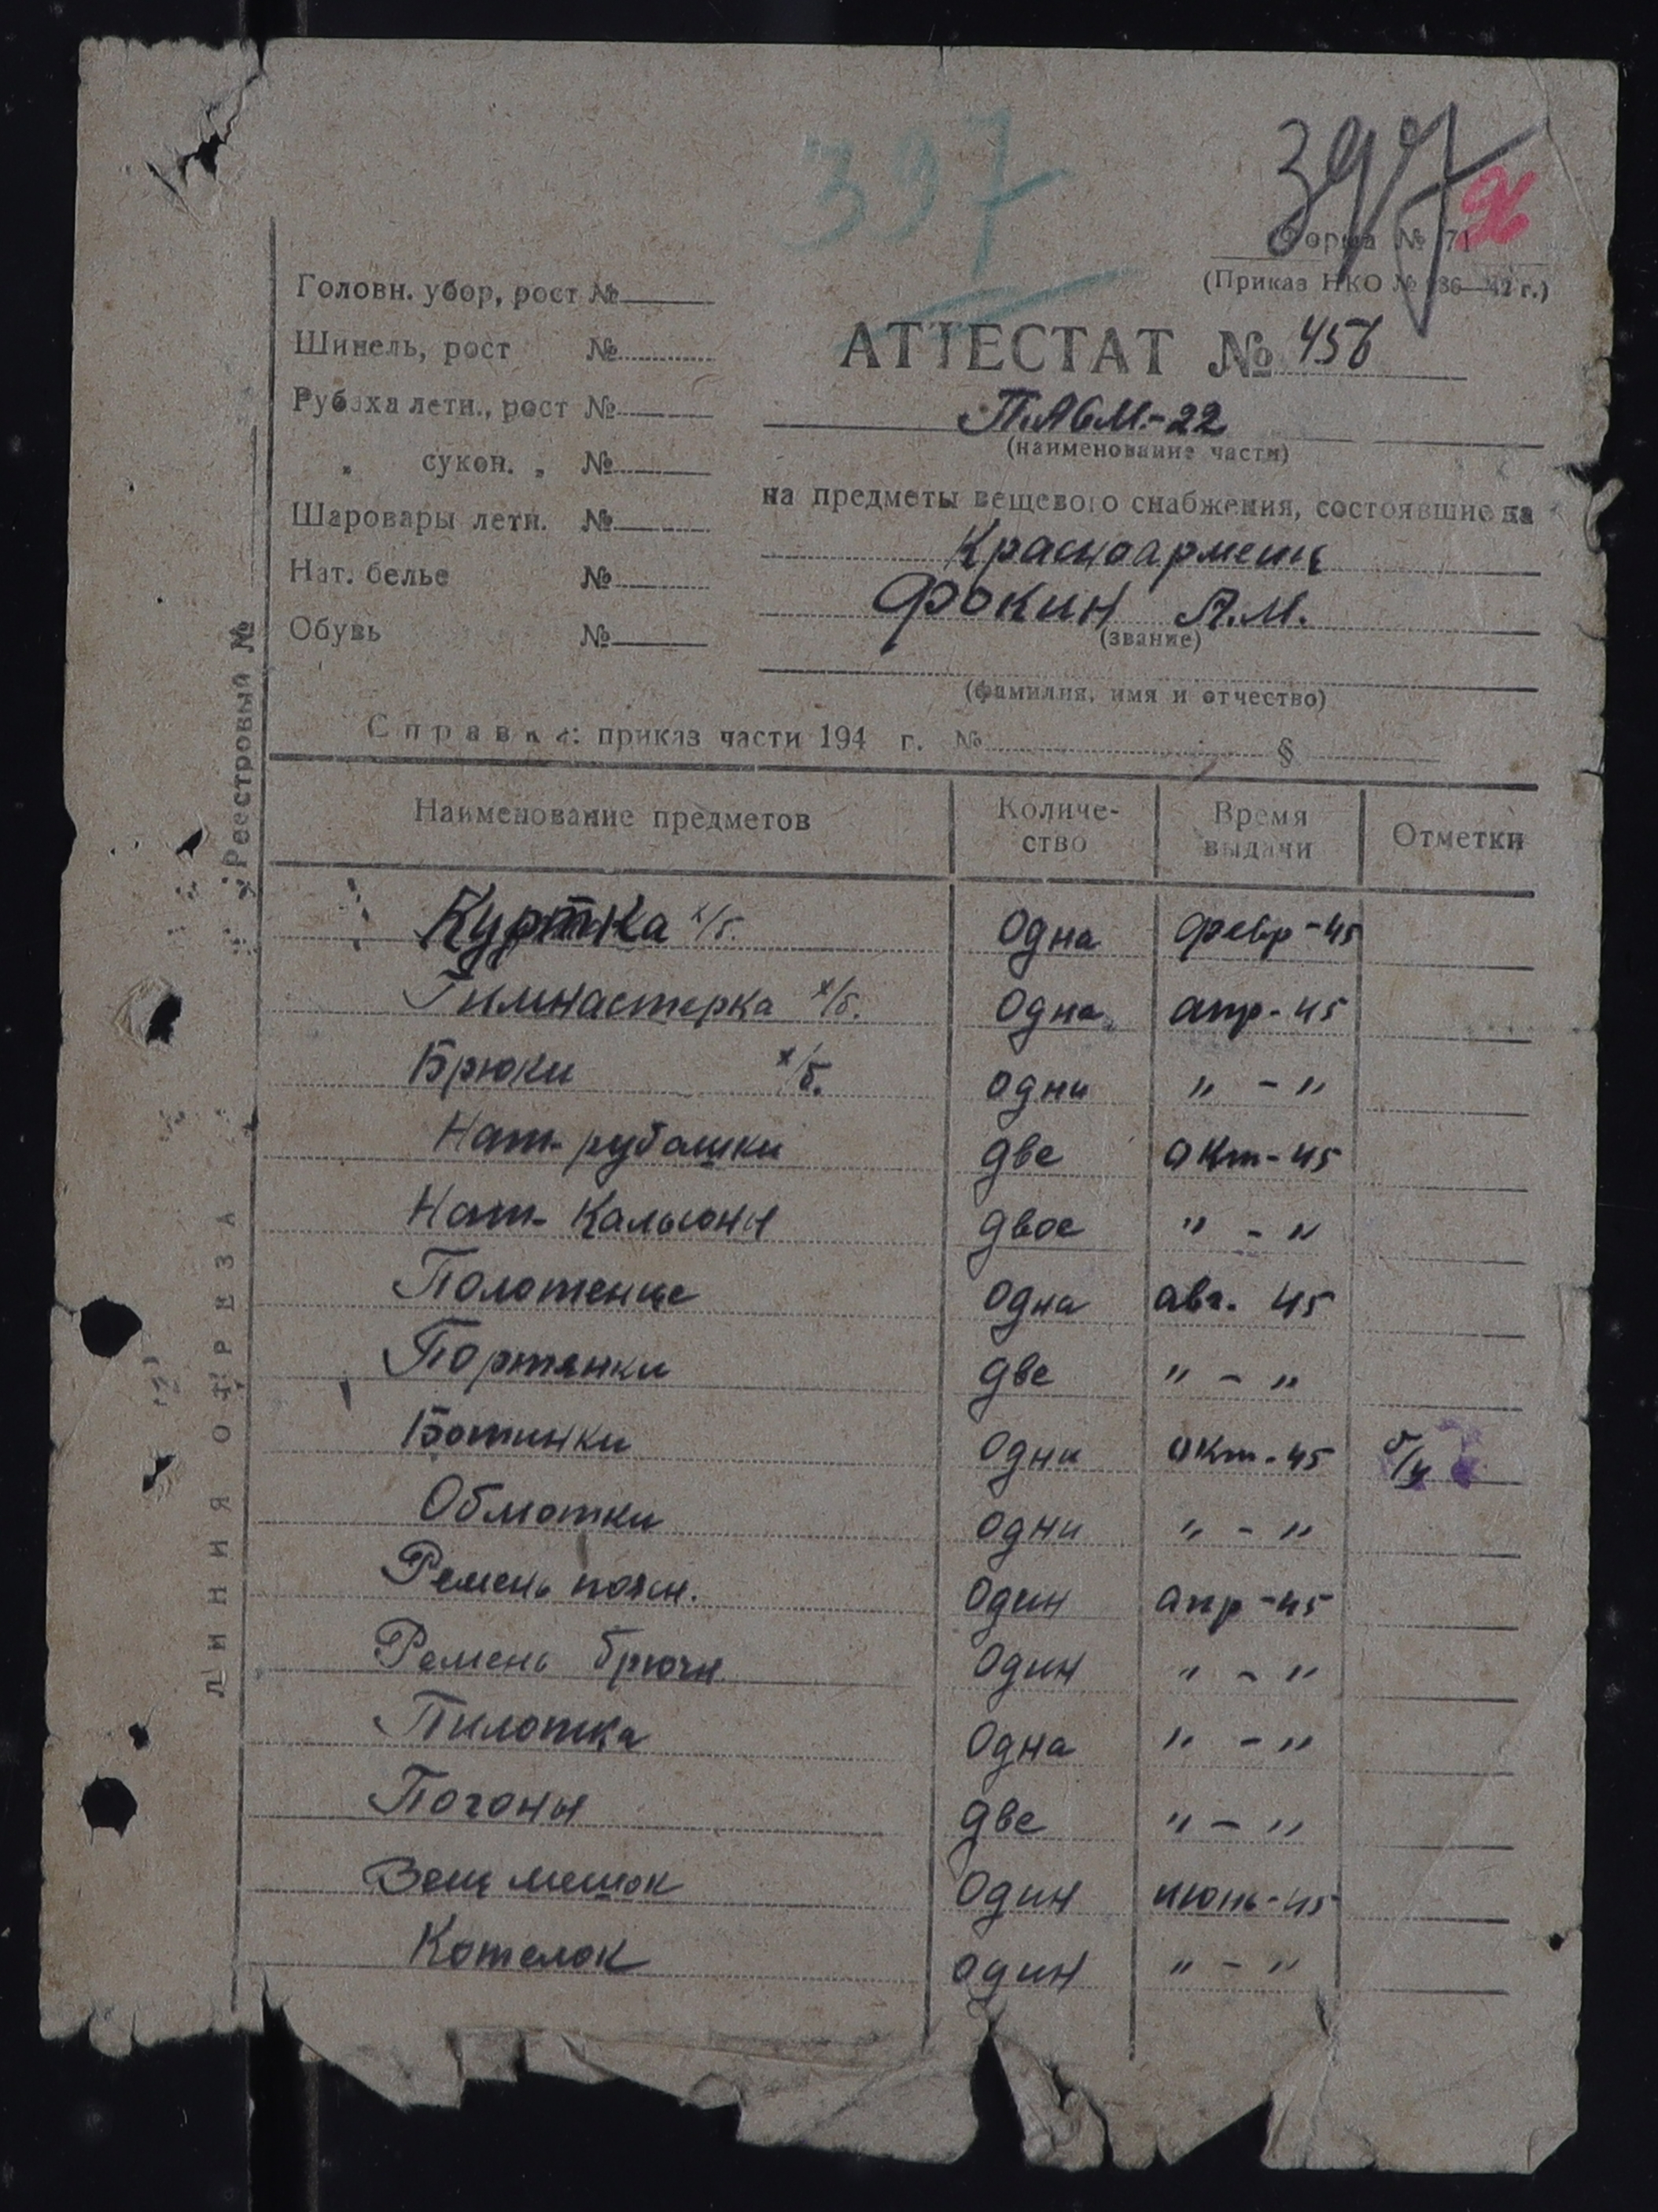 397
397
96
Форма № 71
(Приказ НКО № 286—42 г.)
АТТЕСТАТ № 456
ПАБМ-22
(наименование части)
на предметы вещевого снабжения, состоявшие на
Красноармеец
Фокин А.М.
(звание)
(фамилия, имя и отчество)
Головн. убор, рост №
Шинель, рост №
Рубаха летн., рост №
„ сукон. „ №
Шаровары летн. №
Нат. белье №
Обувь №
Справка: приказ части 194 г. № §
Реестровый №
ЛИНИЯ ОТРЕЗА
Наименование предметов Количе- Время Отметки
ство выдачи
Куртка х/б. Одна февр-45
Гимнастерка х/б. Одна апр-45
Брюки х/б. Одни " - "
Нат-рубашки две окт-45
Нат-Кальсоны двое " - "
Полотенце Одна авг. 45
Портянки две " - "
Ботинки Одни окт-45 б/у
Обмотки Одни " - "
Ремень поясн. Один апр-45
Ремень брючн. Один " - "
Пилотка Одна " - "
Погоны две " - "
Вещ мешок Один июнь-45
Котелок один " - "